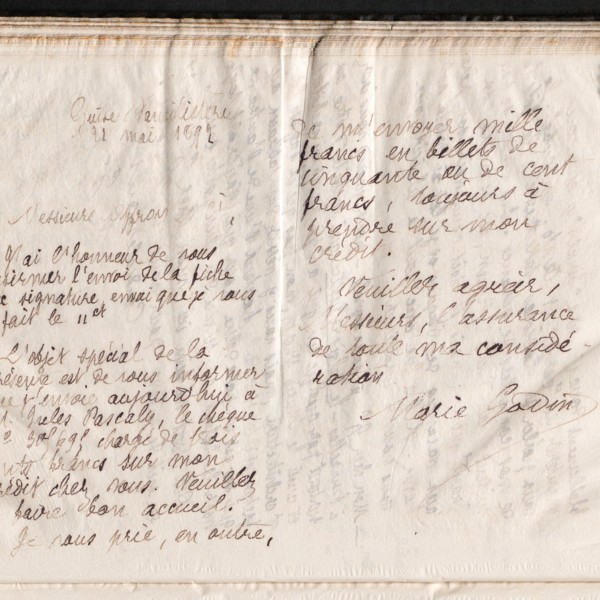 Guise Familistère
21 mai 1892
Messieurs Offroy et Cie,
J'ai l'honneur de vous
firmer l'envoi de la fiche
de signature, envoi que je vous
fait le 11 ct
L'objet spécial de la
présente est de vous informer
que j'envoie aujourd'hui à
M. Jules Pascaly, le chèque
chargé de trois
cents francs sur mon
crédit chez vous. Veuillez
bon accueil.
Je vous prie, en outre,
de m'envoyer mille
francs en billets de
cinquante ou de cent
francs, toujours à
prendre sur mon
crédit.
Veuillez agréer,
Messieurs, l'assurance
de toute ma considé-
ration
Marie Godin